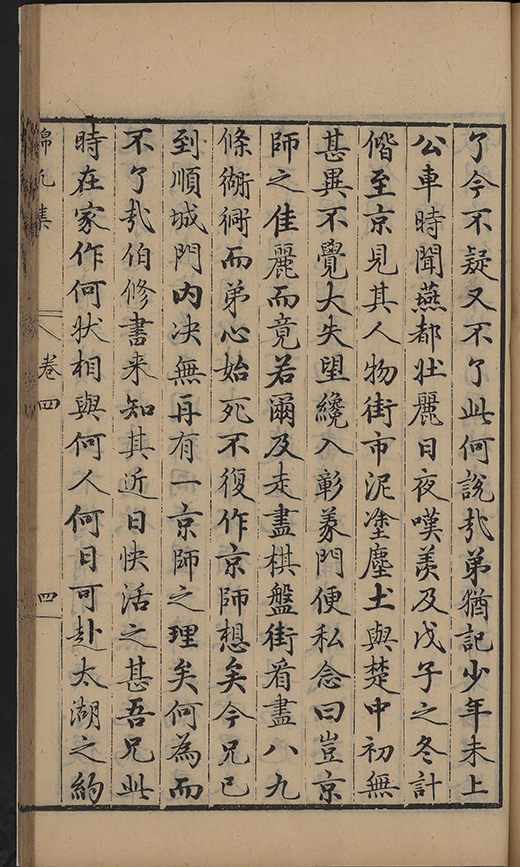 了今不疑又不了此何說哉弟猶記少年未上
公車時聞燕都壯麗日夜嘆羡及戊子之冬計
偕至京見其人物街市泥塗塵土與楚中初無
甚異不覺大失望纔入彰義門便私念曰豈京
師之佳麗而竟若爾及走盡棋盤街看盡八九
條衚衕而弟心始死不復作京師想矣今兄已
到順城門内决無再有一京師之理矣何為而
不了哉伯修書来知其近日快活之甚吾兄此
時在家作何狀相與何人何日可赴太湖之約
錦帆集
卷四
四